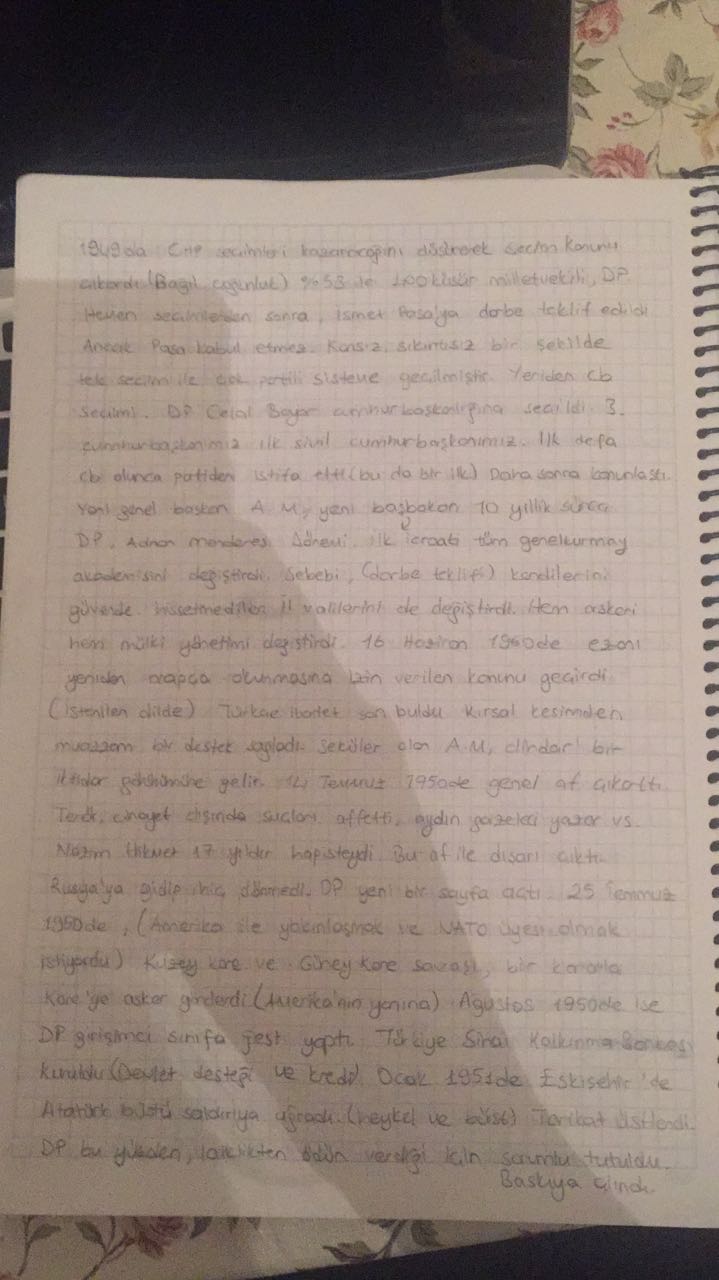 1949da CHP seçimleri kazanacağını düşünerek seçim kanunu
çıkardı (Bağıl çoğunluk) %53 ile 400 küsür milletvekili, DP
Hemen seçimlerden sonra, İsmet Paşa'ya darbe teklif edildi
Ancak Paşa kabul etmez. Kansız, sıkıntısız bir şekilde
tek seçim ile çok partili sisteme geçilmiştir. Yeniden cb
seçimi. DP Celal Bayar cumhurbaşkanlığına seçildi 3.
cumhurbaşkanımız ilk sivil cumhurbaşkanımız. İlk defa
cb olunca partiden istifa etti (bu da bir ilk) Daha sonra kanunlaştı.
Yeni genel başkan A.M, yeni başbakan 10 yıllık sürece
DP, Adnan menderes dönemi. ilk icraatı tüm genelkurmay
akademisini değiştirdi. Sebebi, (darbe teklifi) kendilerini
güvende hissetmediler il valilerini de değiştirdi. Hem askeri
hem mülki yönetimi değiştirdi. 16 Haziran 1950de ezanı
yeniden arapça okunmasına izin verilen kanunu geçirdi
(istenilen dilde) Türkçe ibadet son buldu Kırsal kesimden
muazzam bir destek sağladı. Seküler olan A.M, dindar bir
iktidar görünümüne gelir. 14 Temmuz 1950de genel af çıkarttı
Terör, cinayet dışında suçları affetti, aydın gazeteci yazar vs.
Nazım Hikmet 17 yıldır hapisteydi. Bu af ile dışarı çıktı.
Rusya'ya gidip hiç dönmedi. DP yeni bir sayfa açtı. 25 Temmuz
1950de, (Amerika ile yakınlaşmak ve NATO üyesi olmak
istiyordu) Kuzey kore ve Güney Kore savaşı, bir kararla
Kore'ye asker gönderdi (Amerika'nın yanına) Ağustos 1950de ise
DP girişimci sınıfa jest yaptı. Türkiye Sinai Kalkınma Bankası
kuruldu (Devlet desteği ve kredi) Ocak 1951de Eskişehir'de
Atatürk büstü saldırıya uğradı. (heykel ve büst) Tarikat üstlendi.
DP bu yüzden, laiklikten ödün verdiği için sorumlu tutuldu.
Baskıya alındı.